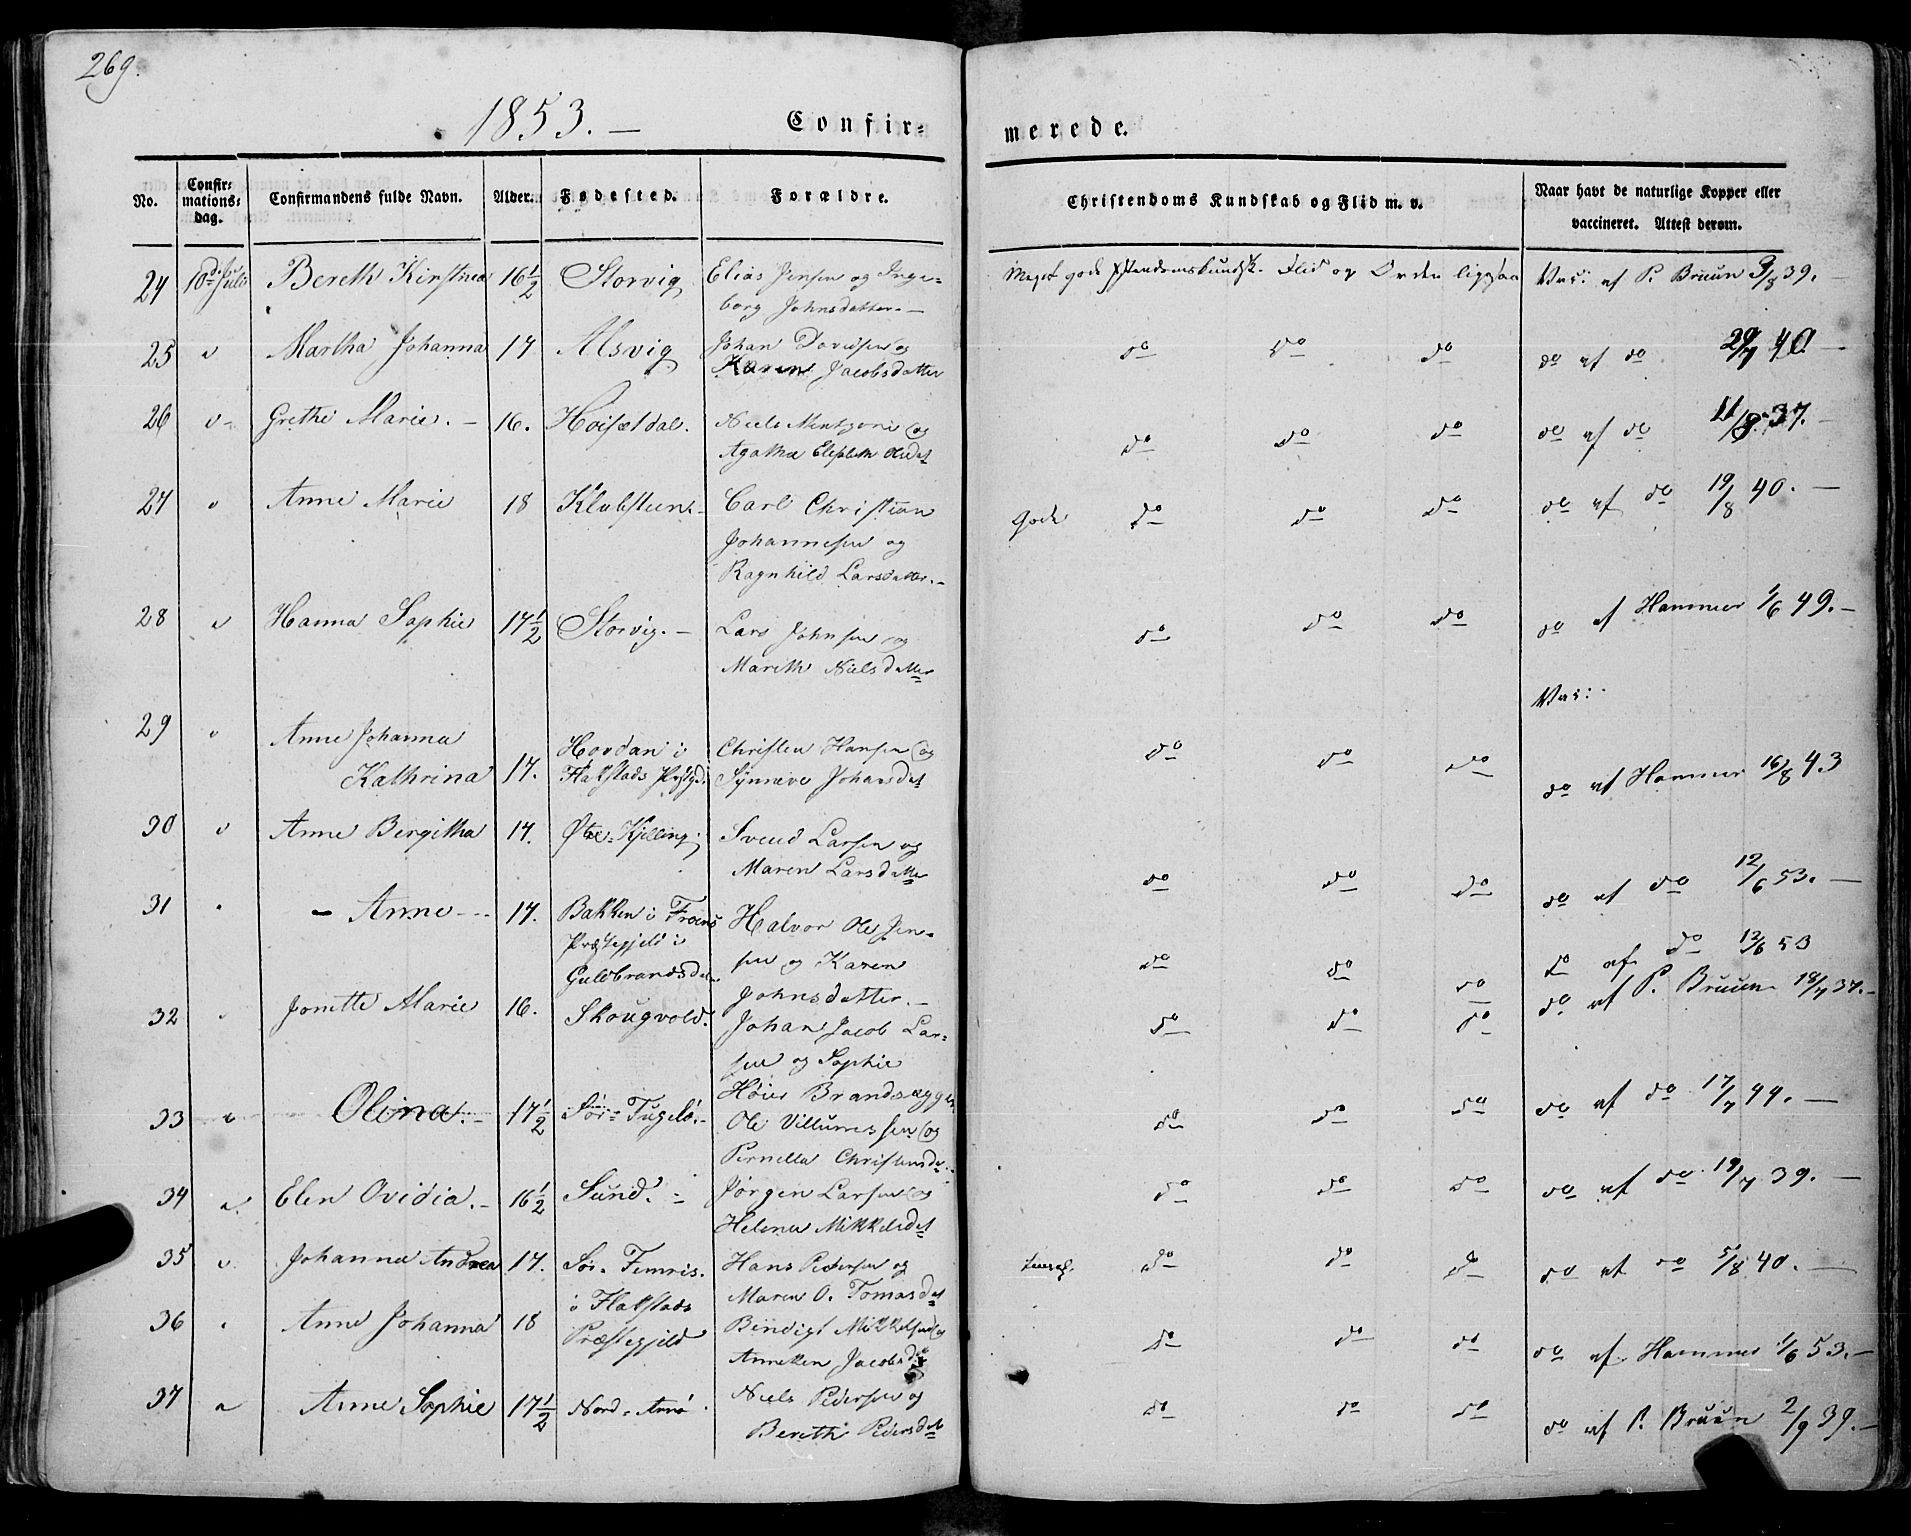 269.
1853. —
Confir-
merede.
No.
Confir-
mations-
dag.
Confirmandens fulde Navn.
Alder.
Fødested.
Forældre.
Christendoms Kundskab og Flid m. v.
Naar havt de naturlige Kopper eller
vaccineret. Attest derom.
24 10de Juli Bereth Kirstina 16½ Storvig Elias Jensen og Inge-
borg Johnsdatter. —
Meget gode Xstendomskundsk. Flid og Orden ligesaa Vac: af P. Bruun 9/8 39. —
25 " Martha Johanna 17 Alsvig Johan Davidsen og
Karen Jacobsdatter
do do do do af do 29/7 40. —
26 " Grethe Marie. — 16. Niels og
Agatha Elisabeth Olsdat
do do do do af do 11/8 37. —
27 " Anne Marie 18 Klubsteen. Carl Christian
Johannesen og
Ragnhild Larsdatter. —
gode do do do do af do 19/8 40. —
28 " Hanna Sophie 17½ Storvig. — Lars Johnsen og
Mareth Nielsdatter
do do do do af Hammer 1/6 49. —
Vac:
29 " Anne Johanna
Kathrina 17. Hovdan i
Flakstads Præstgjd. Christen Hansen og
Synneve Johansdat
do do do do af Hammer 16/8 43
30 " Anne Bergitha 17. Øtre-Kjelling. Svend Larsen og
Maren Larsdatter
do do do do af do 12/6 53. —
31 " - Anne - - 17. Bakken i Froens
Præstegjeld i
Guldbrandsdal Halvor Ole Jen-
sen og Karen
Johnsdatter. —
do do do do af do 12/6 53
32 " Jonette Marie 16. Skougvold. Johan Jacob Lar-
sen og Sophie
Høier Brandsægg
do do do do af P. Bruun 18/7 37. —
33 " Olina. - 17½ Sør-Fugelö. - Ole Villumssen og
Pernella Christensd.
do do do do af do 17/7 44. —
34 " Elen Ovidia. - 16½ Sund. - Jörgen Larsen og
Helena Mikkelsdat
do do do do af do 19/7 39. —
35 " Johanna Andrea 17. Sör-Femris. Hans Pedersen og
Maren O. Tomasdat
do do do do af do 5/8 40. —
36 " Anne Johanna 18 i Flakstads
Præstegjeld Bendigt Mikkelsen og
Anneken Jacobsdat
do do do do af Hammer 1/6 53. —
37 " Anne Sophie 17½ Nord-Arnö. Niels Pedersen og
Bereth Pedersdat
do do do do af P. Bruun 2/9 39. —